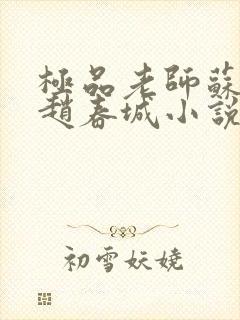 極品老師蘇
趙春城小說
初雪妖嬈